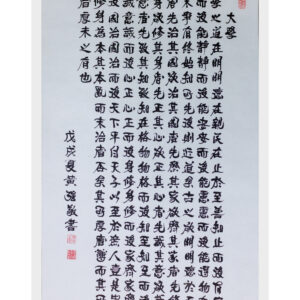 大學
之道在明明德在親民在止於至善知止而
而後能靜靜而後能安安而後能慮慮而後能得物
本末事有終始知所先後則近道矣古之欲明明德
治其國欲治其國者先齊其家欲齊其家者先修其
身欲修其身者先正其心欲正其心者先誠其意欲誠
其意者先致其知致知在格物物格而後知至
意誠而後心正心正而後身修身修而後家齊家
國治國治而後天下平自天子以至於庶人壹是皆
身為本其本亂而末治者否矣其所厚者薄而其
者未之有也
戊戌夏黃 敬書